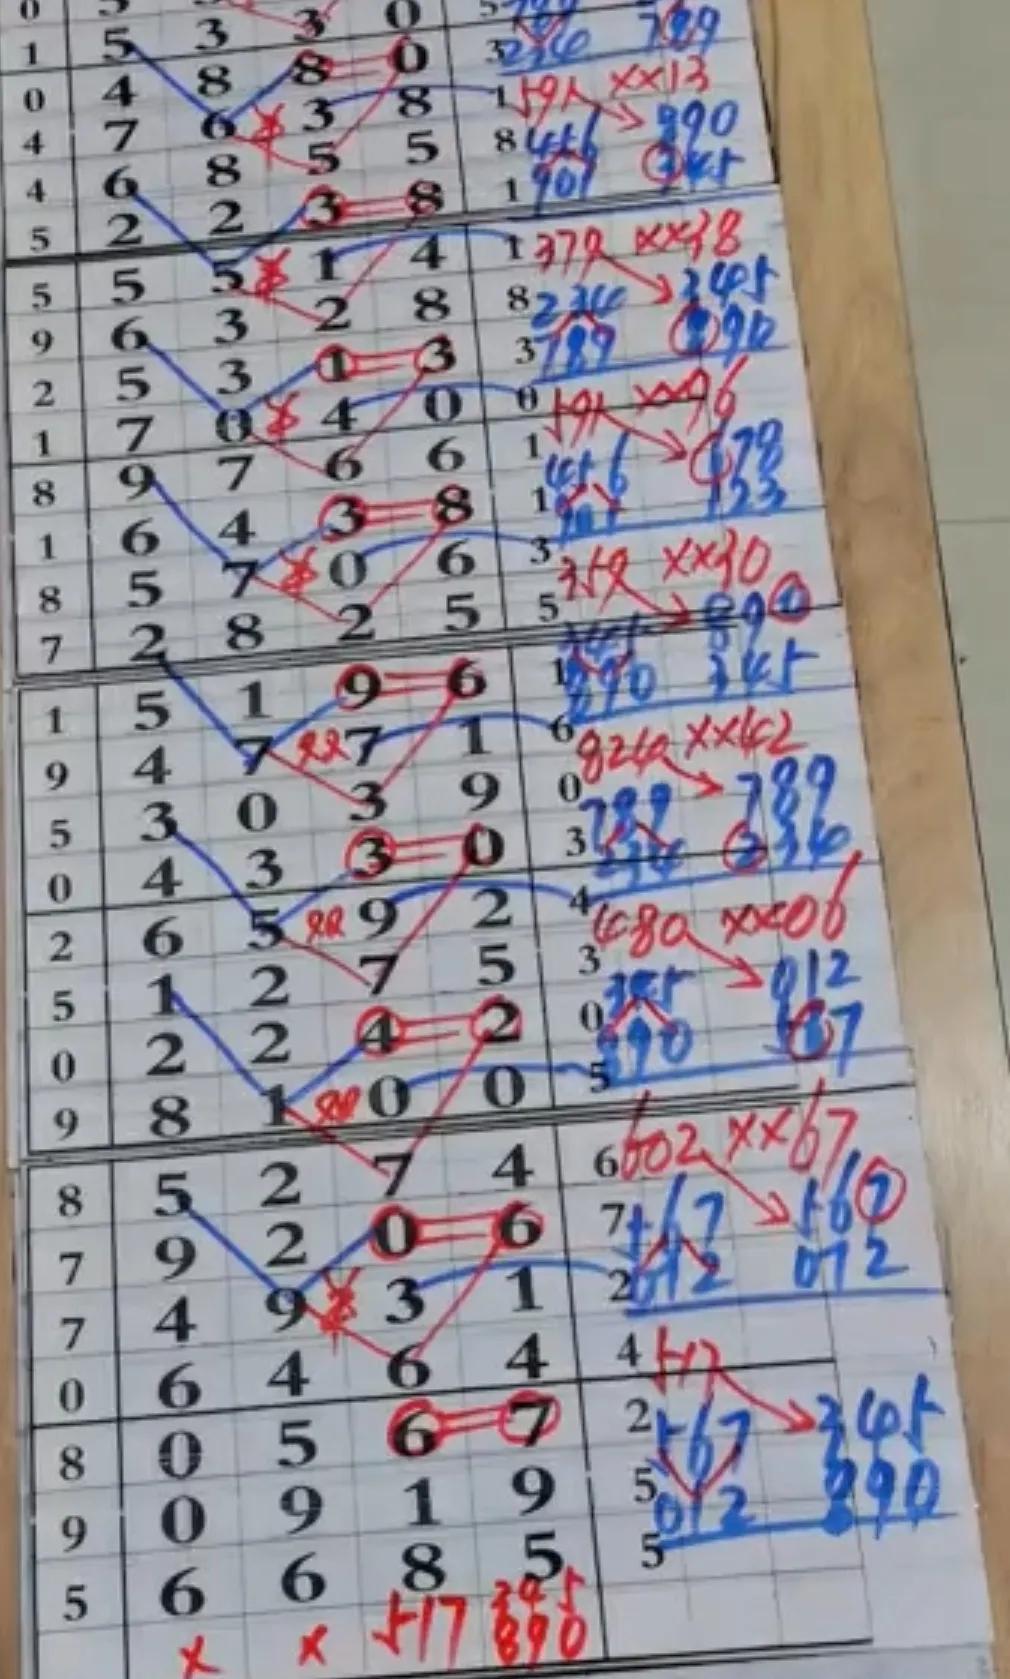 1 5 3 3 0 3 234 789
0 4 8 8 0
4 7 6 3 8 1 591 xx13
4 6 8 5 5 8 456 890
5 2 2 3 8 1 901 345
5 5 5 1 4 1 379 xx38
9 6 3 2 8 8 234 345
2 5 3 1 3 3 789 890
1 7 0 4 0 0 591 xx96
8 9 7 6 6 1 456 678
1 6 4 3 8 1 901 123
8 5 7 0 6 3 359 xx30
7 2 8 2 5 5 345 890
1 5 1 9 6 1 890 345
9 4 7 7 1 6 824 xx42
5 3 0 3 9 0 789 789
0 4 3 3 0 3 234 234
2 6 5 9 2 4 480 xx06
5 1 2 7 5 3 345 012
0 2 2 4 2 0 890 567
9 8 1 0 0 5
8 5 2 7 4 6 602 xx67
7 9 2 0 6 7 567 567
7 4 9 3 1 2 012 012
0 6 4 6 4 4 517
8 0 5 6 7 2 567 345
9 0 9 1 9 5 012 890
5 6 6 8 5 5
x x 517 345
890